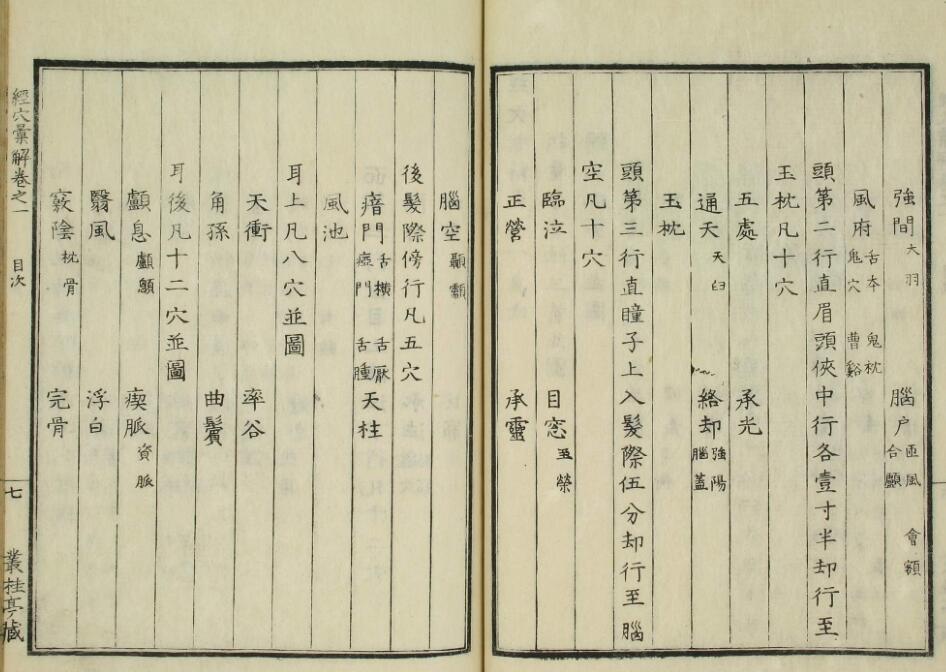 強間 大羽 腦户 匝風 會額 合顱
風府 舌本 鬼枕 鬼穴 曹谿
頭第二行直眉頭俠中行各壹寸半却行至
玉枕凡十穴
五處 承光
通天 天臼 絡却 強陽 腦蓋
玉枕
頭第三行直瞳子上入髮際伍分却行至腦
空凡十穴
臨泣 目窓 至榮
正營 承靈
腦空 顳顬
後髮際傍行凡五穴
瘖門 舌橫 舌厭 瘂門 舌腫 天柱
風池
耳上凡八穴並圖
天衝 率谷
角孫 曲鬢
耳後凡十二穴並圖
顱息 顱顖 瘈脈 資脈
翳風 浮白
竅陰 枕骨 完骨
經穴彙解卷之一 目次 七 叢桂亭藏